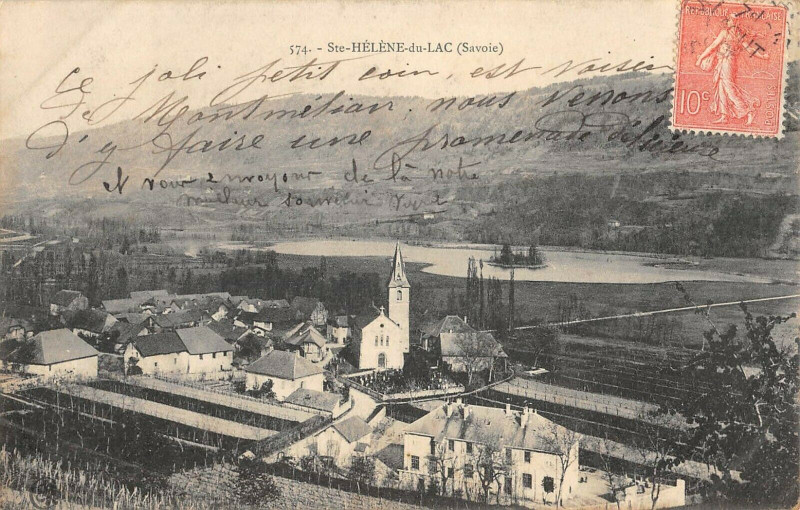 574. - Ste-HÉLÈNE-du-LAC (Savoie)
RÉPUBLIQUE FRANÇAISE
10c
POSTES
Ce joli petit coin, est voisin
de Montmélian. nous venons
d'y faire une promenade
Et vous envoyons de là notre
meilleur souvenir